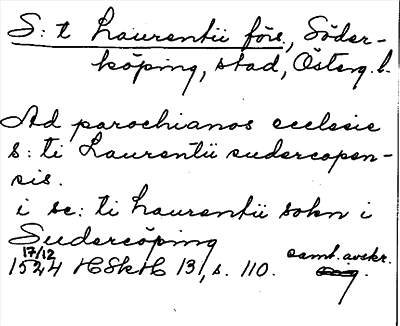 S:t Laurentii förs., Söder-
köping, stad, Österg. l.
Ad parochianos ecclesie
s:ti Laurentii sudercopen-
sis.
i sc:ti Laurentii sokn i
Sudercöping
17/12
1524 HSkH 13, s. 110. samt. avskr.